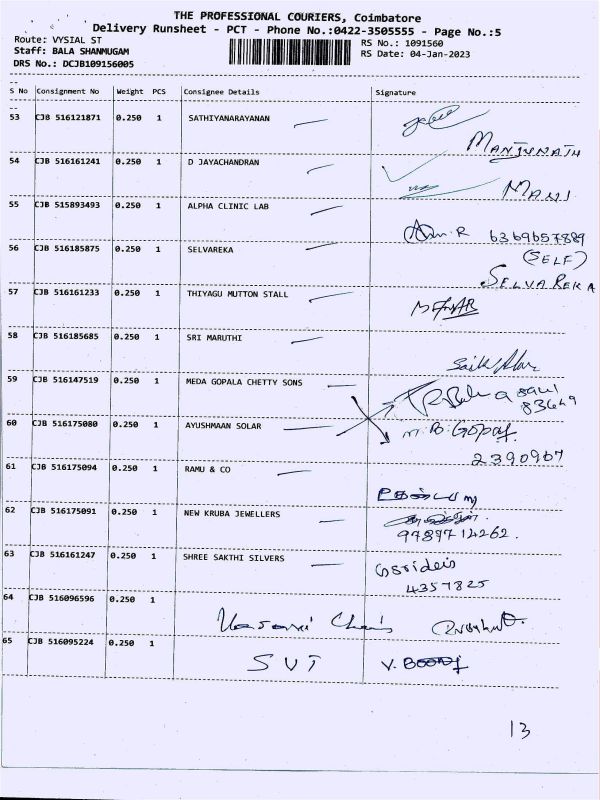 THE PROFESSIONAL COURIERS, Coimbatore
Delivery Runsheet - PCT - Phone No.:0422-3505555 - Page No.:5
Route: VYSIAL ST
Staff: BALA SHANMUGAM
DRS No.: DCJB109156005
RS No.: 1091560
RS Date: 04-Jan-2023
S No Consignment No Weight PCS Consignee Details Signature
53 CJB 516121871 0.250 1 SATHIYANARAYANAN
MANJUNATH
54 CJB 516161241 0.250 1 D JAYACHANDRAN
MANI
55 CJB 515893493 0.250 1 ALPHA CLINIC LAB
6369657889
56 CJB 516185875 0.250 1 SELVAREKA
(SELF)
SELVA REKA
57 CJB 516161233 0.250 1 THIYAGU MUTTON STALL
58 CJB 516185685 0.250 1 SRI MARUTHI
59 CJB 516147519 0.250 1 MEDA GOPALA CHETTY SONS
60 CJB 516175080 0.250 1 AYUSHMAAN SOLAR
M.B. Gopal
2390967
61 CJB 516175094 0.250 1 RAMU & CO
62 CJB 516175091 0.250 1 NEW KRUBA JEWELLERS
9789714262.
63 CJB 516161247 0.250 1 SHREE SAKTHI SILVERS
4357825
64 CJB 516096596 0.250 1
65 CJB 516095224 0.250 1
SVT
13